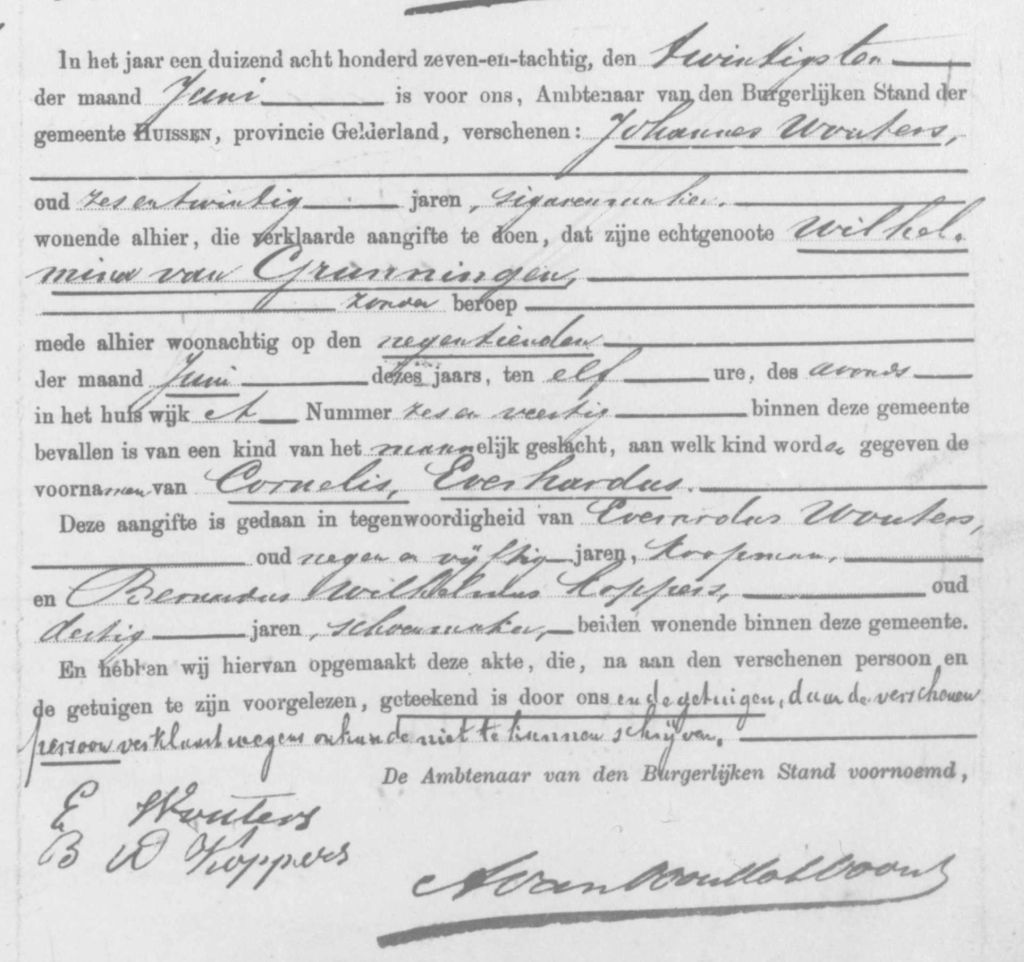 In het jaar een duizend acht honderd zeven-en-tachtig, den twintigsten
der maand Juni is voor ons, Ambtenaar van den Burgerlijken Stand der
gemeente HUISSEN, provincie Gelderland, verschenen: Johannes Wouters,
oud zes en twintig jaren, sigarenmaker.
wonende alhier, die verklaarde aangifte te doen, dat zijne echtgenoote Wilhel-
mina van Grunningen,
zonder beroep
mede alhier woonachtig op den negentienden
der maand Juni dezes jaars, ten elf ure, des avonds
in het huis wijk A Nummer zes en veertig binnen deze gemeente
bevallen is van een kind van het mannelijk geslacht, aan welk kind worden gegeven de
voornamen van Cornelis, Everhardus.
Deze aangifte is gedaan in tegenwoordigheid van Everardus Wouters,
oud negen en vijftig jaren, koopman,
en Bernardus Wilhelmus Koppers, oud
dertig jaren, schoenmaker, beiden wonende binnen deze gemeente.
En hebben wij hiervan opgemaakt deze akte, die, na aan den verschenen persoon en
de getuigen te zijn voorgelezen, geteekend is door ons en de getuigen, daar de verschenen
persoon verklaart wegens onkunde niet te kunnen schrijven.
De Ambtenaar van den Burgerlijken Stand voornoemd,
E Wouters
B W Koppers